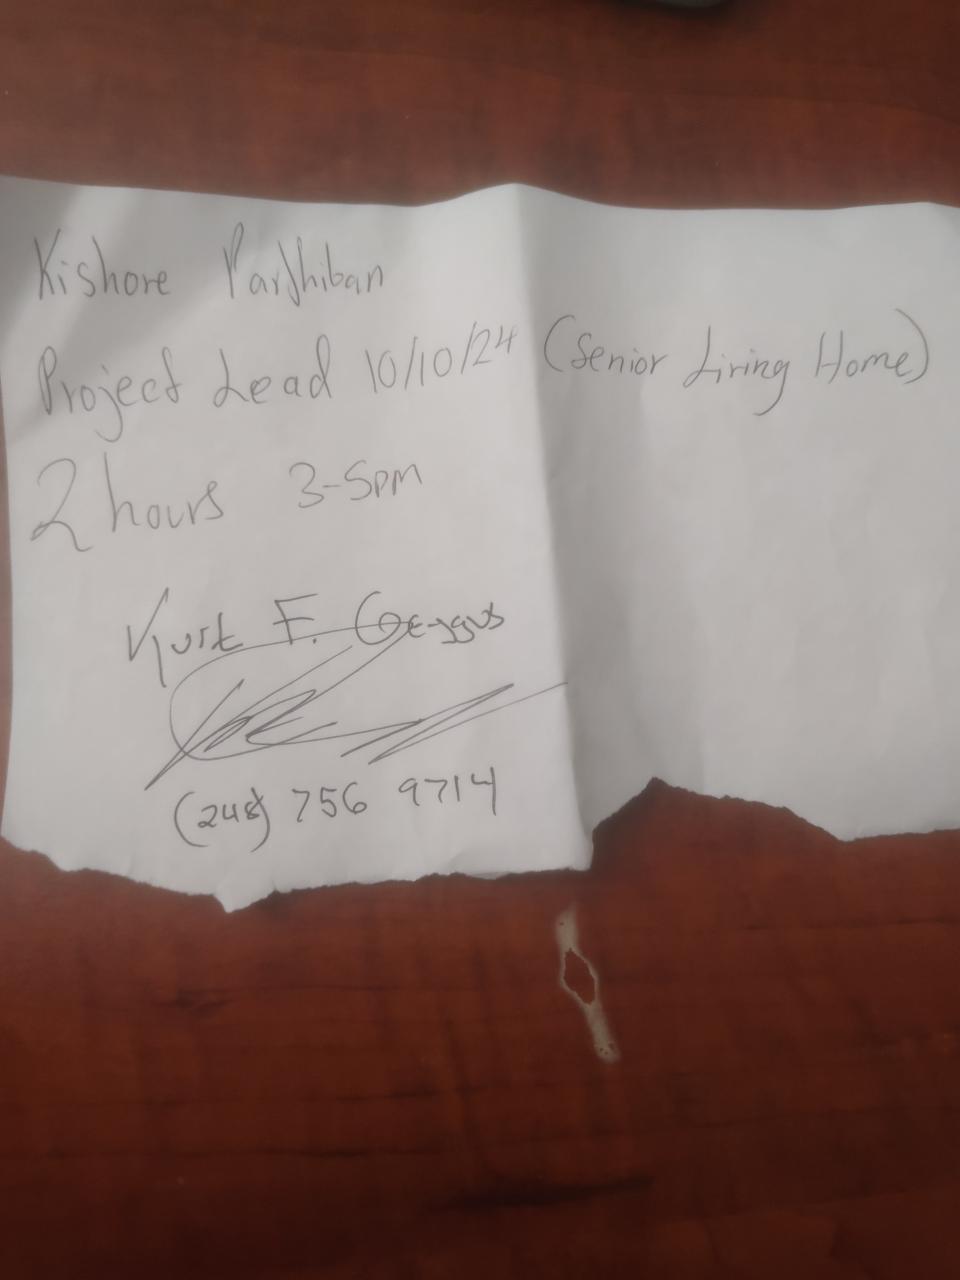 Kishore Parthiban
Project Lead 10/10/24 (Senior Living Home)
2 hours 3-5pm
Kurt F. Geggus
(248) 756 9714